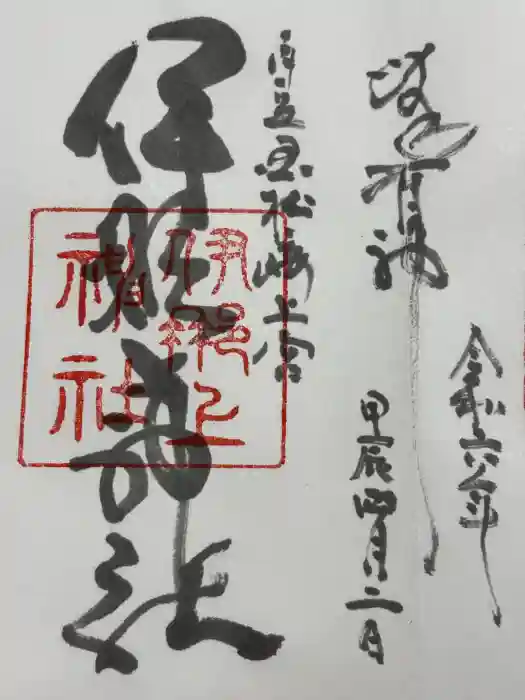 令和六年
甲辰四月二日
豆国松崎上宮
伊那上神社
伊那上
神社